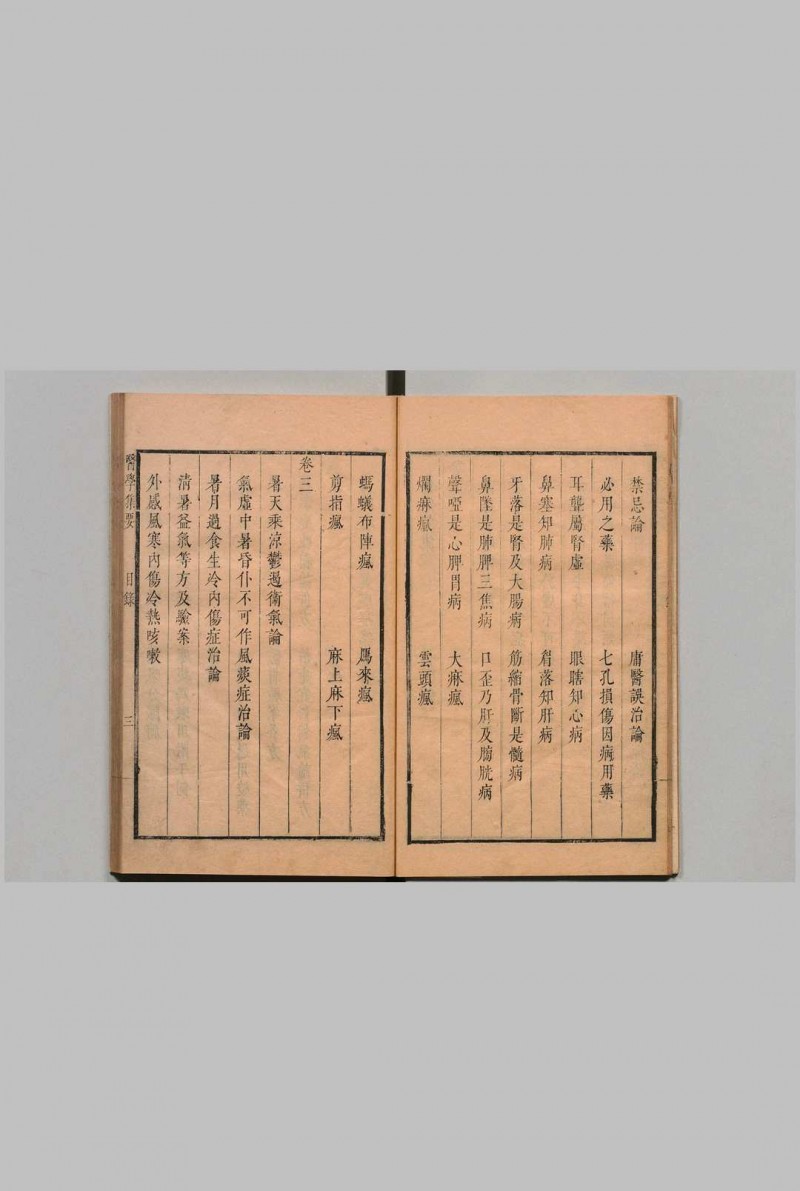 禁忌論　庸醫誤治論
必用之藥　七孔損傷因病用藥
耳聾屬腎虛　眼瞎知心病
鼻塞知肺病　眉落知肝病
牙落是腎及大腸病　筋縮骨斷是髓病
鼻墜是肺脾三焦病　口歪乃肝及膀胱病
聲啞是心脾胃病　大麻瘋
爛麻瘋　雲頭瘋
螞蟻布陣瘋　馬來瘋
剪指瘋　麻上麻下瘋
卷三
暑天乘涼鬱遏衛氣論
氣虛中暑昏仆不可作風痰症治論
暑月過食生冷內傷症治論
清暑益氣等方及驗案
外感風寒內傷冷熱咳嗽
醫學集要　目錄　三